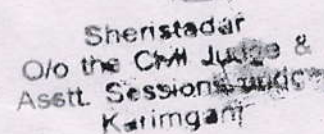 Sheristadar
O/o the Civil Judge &
Asstt. Sessions Judge
Karimganj